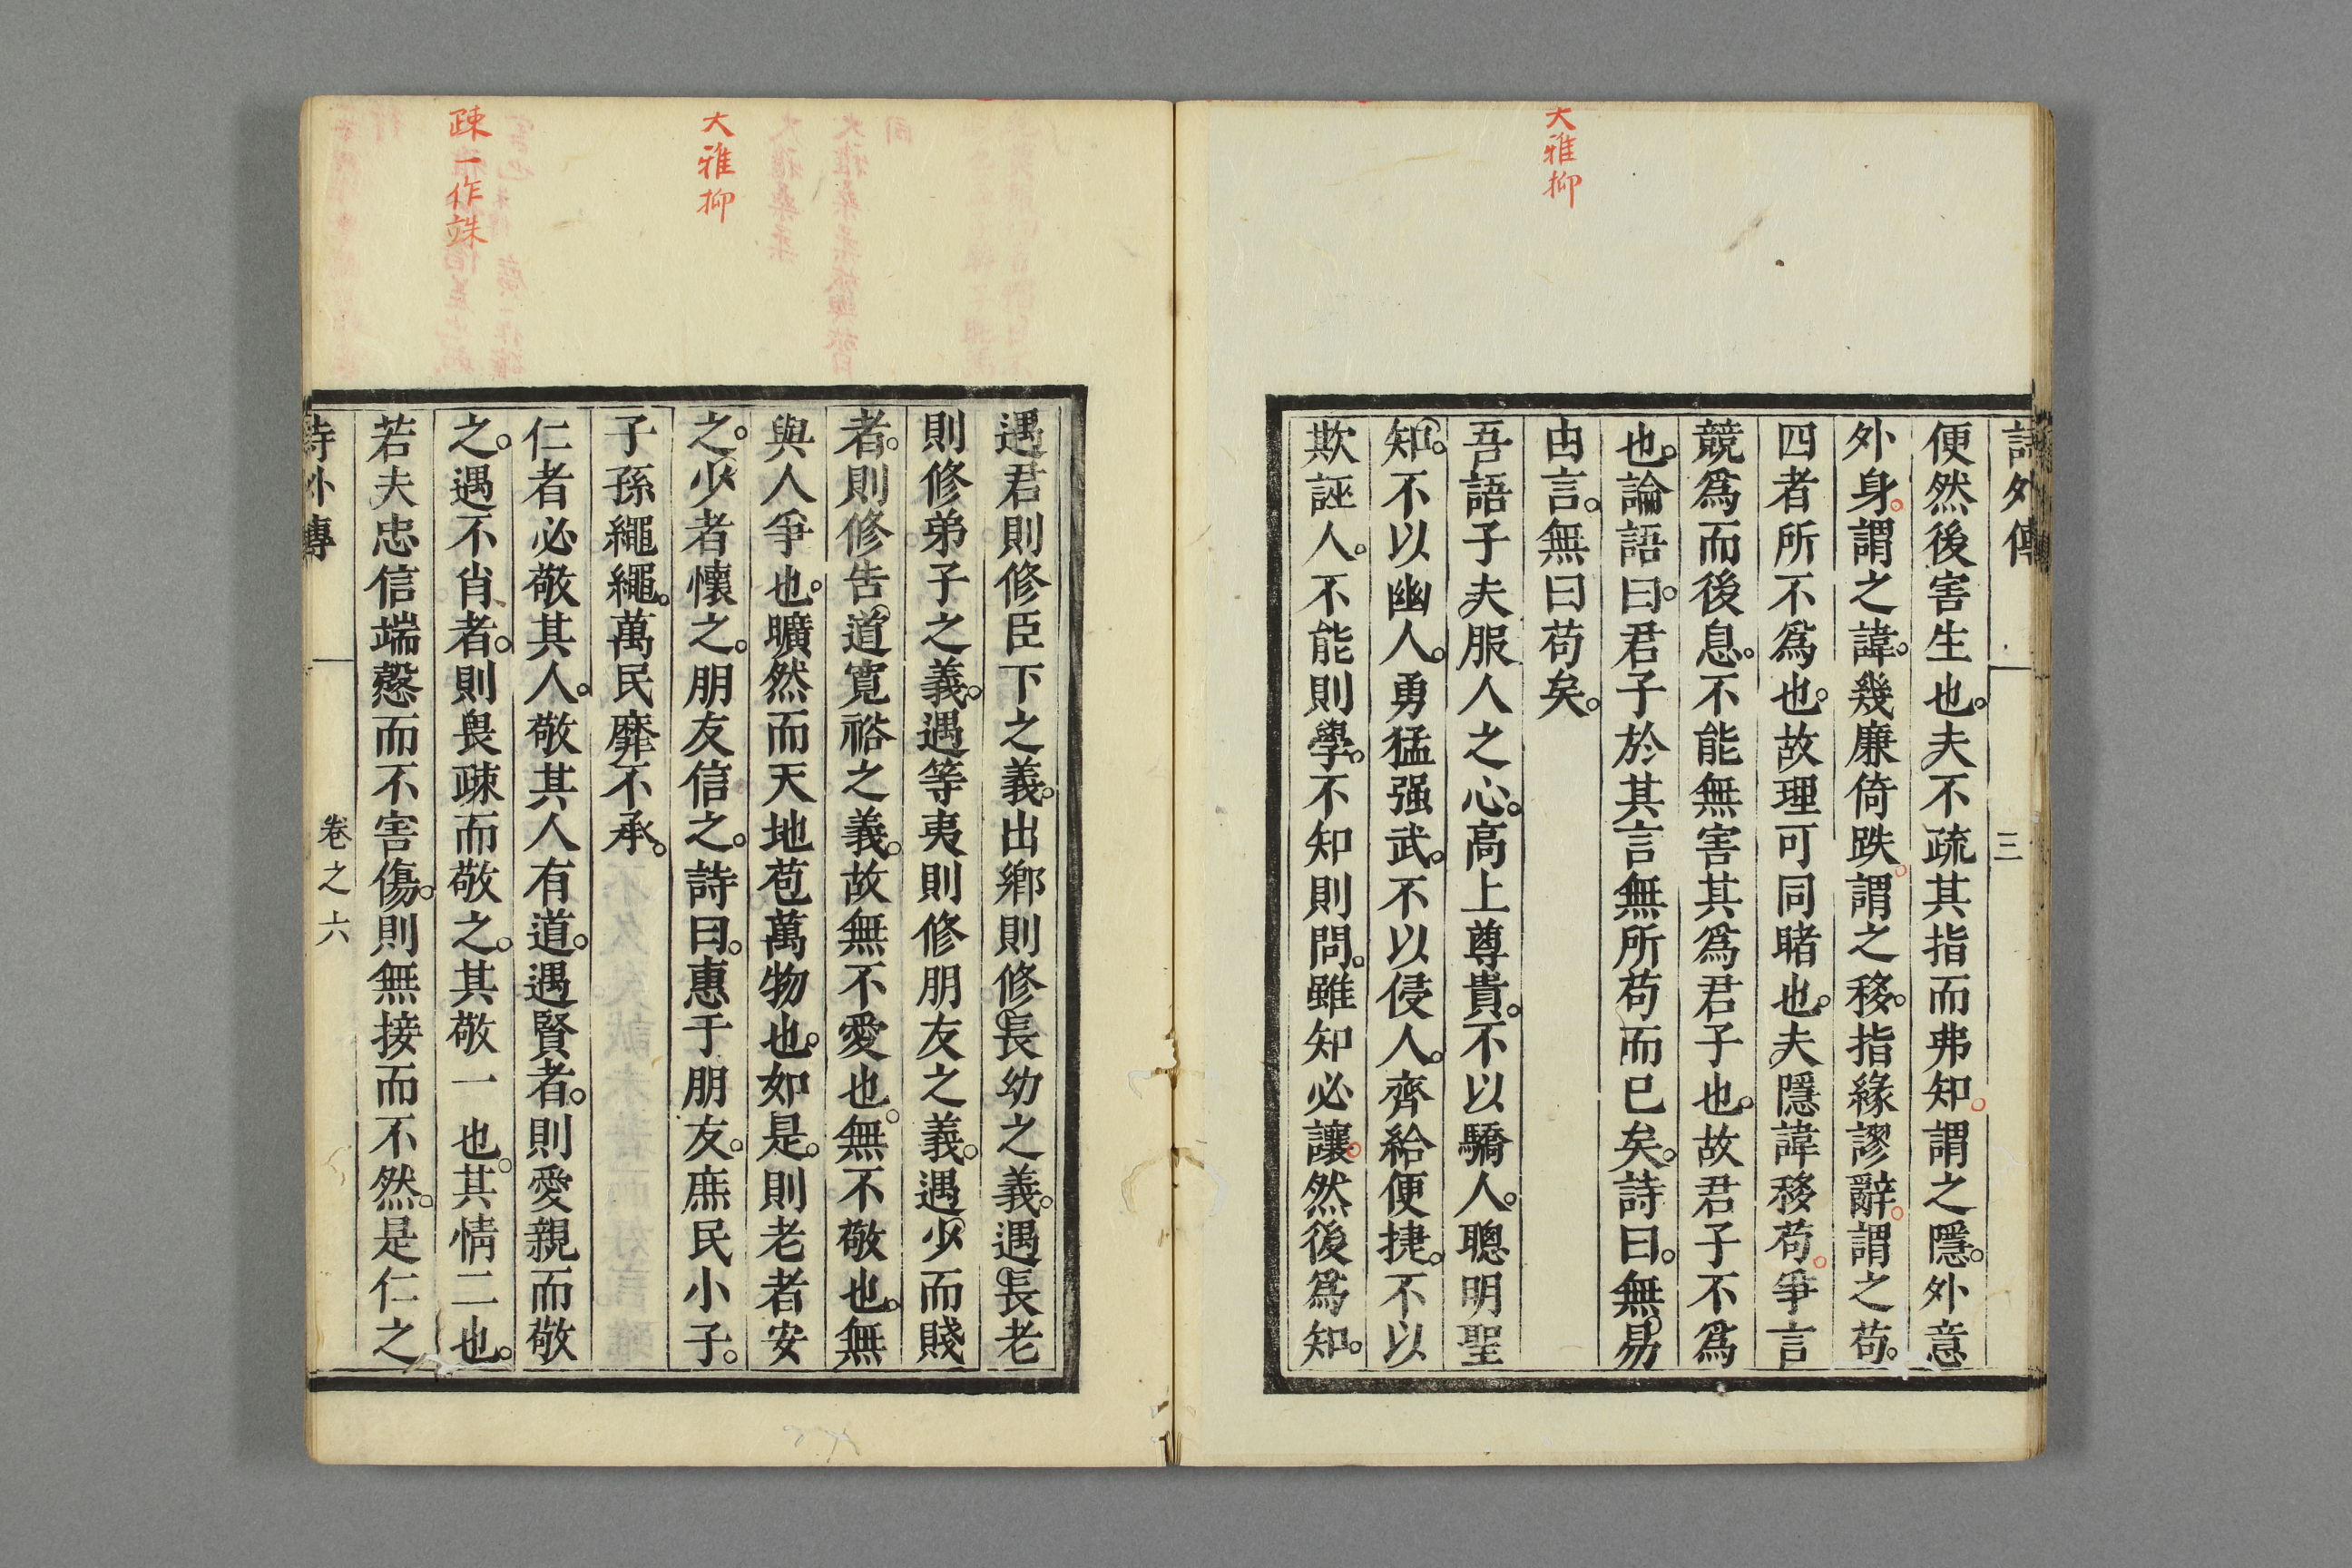 大雅抑
詩外傳 三
便然後害生也。夫不疏其指而弗知。謂之隱。外意
外身。謂之諱。幾廉倚跌。謂之移。指緣謬辭。謂之苟。
四者所不爲也。故理可同睹也。夫隱諱移苟。爭言
競爲而後息。不能無害其爲君子也。故君子不爲
也。論語曰。君子於其言無所苟而已矣。詩曰。無易
由言。無曰苟矣。
吾語子夫服人之心。高上尊貴。不以驕人。聰明聖
知。不以幽人。勇猛强武。不以侵人。齊給便捷。不以
欺誣人。不能則學。不知則問。雖知必讓。然後爲知。
大雅抑
疎一作誅
遇君則修臣下之義。出鄉則修長幼之義。遇長老
則修弟子之義。遇等夷則修朋友之義。遇少而賤
者。則修告道寬裕之義。故無不愛也。無不敬也。無
與人爭也。曠然而天地苞萬物也。如是。則老者安
之。少者懷之。朋友信之。詩曰。惠于朋友。庶民小子。
子孫繩繩。萬民靡不承。
仁者必敬其人。敬其人有道。遇賢者。則愛親而敬
之。遇不肖者。則畏疎而敬之。其敬一也。其情二也。
若夫忠信端慤而不害傷。則無接而不然。是仁之
詩外傳 卷之六